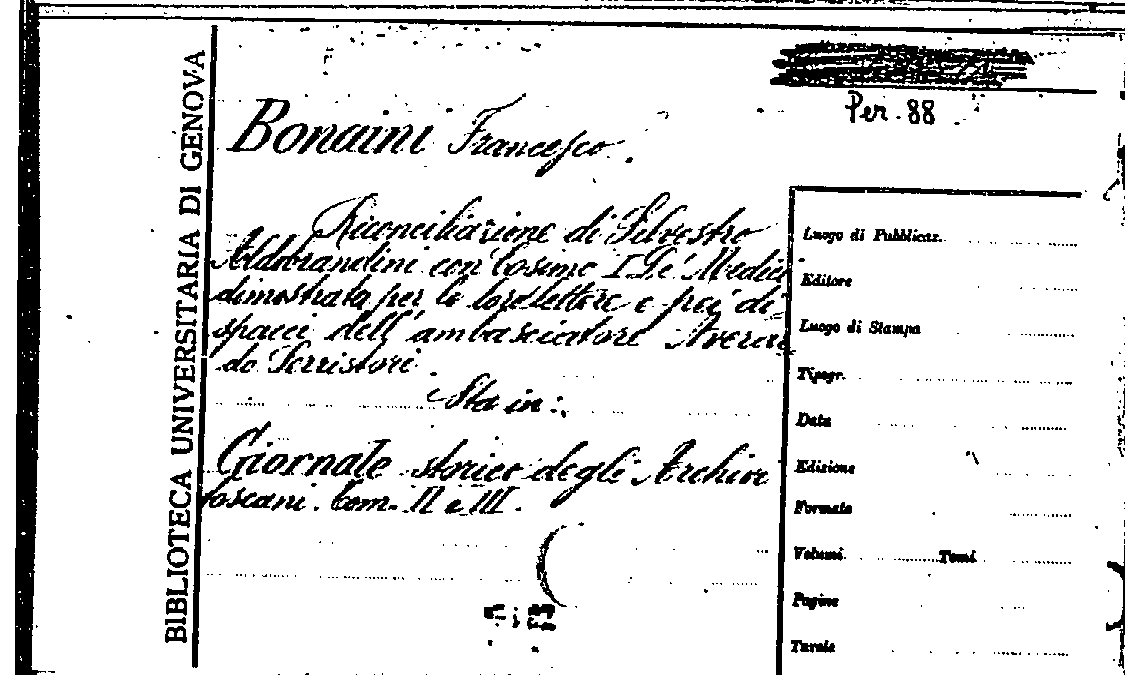 BIBLIOTECA UNIVERSITARIA DI GENOVA
Per. 88
Bonaini Francesco.
Riconciliazione di Silvestro
Aldobrandini con Cosimo I De' Medici
dimostrata per le loro lettere e pei di-
spacci dell'ambasciatore Averar
do Serristori
Sta in:
Giornale storico degli Archivi
toscani. Tom. II e III.
Luogo di Pubblicaz.
Editore
Luogo di Stampa
Tipogr.
Data
Edizione
Formato
Volumi Tomi
Pagine
Tavole